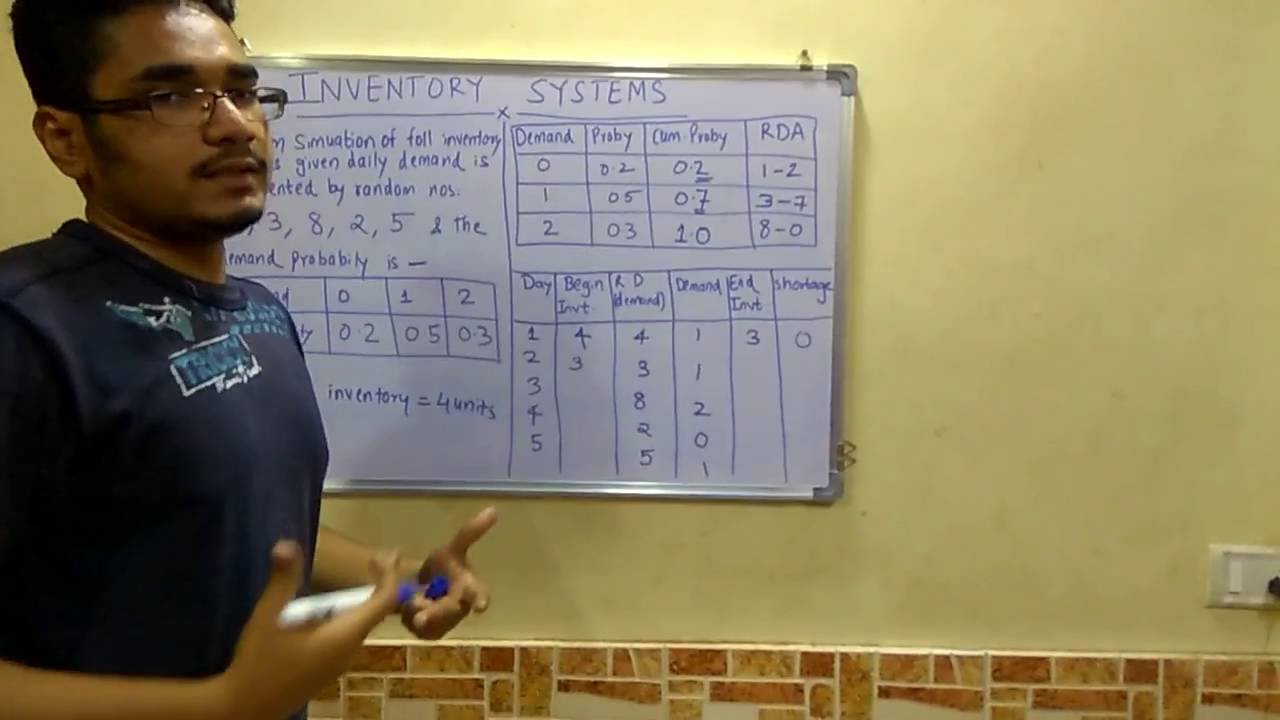 INVENTORY SYSTEMS
Simuation of foll inventory
given daily demand is
by random nos.
3, 8, 2, 5 & the
Probabily is —
0 1 2
0.2 0 5 0.3
inventory = 4 units
Demand Proby Cum. Proby RDA
0 0.2 0.2 1-2
1 05 0.7 3-7
2 03 1.0 8-0
Day Begin Invt. R D (demand) Demand End Invt shortage
1 4 4 1 3 0
2 3 3 1
3 8 2
4 2 0
5 5 1